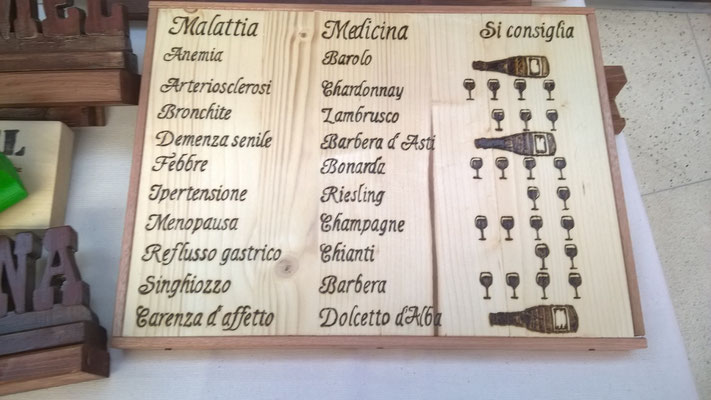 Malattia Medicina Si consiglia
Anemia Barolo
Arteriosclerosi Chardonnay
Bronchite Lambrusco
Demenza senile Barbera d'Asti
Febbre Bonarda
Ipertensione Riesling
Menopausa Champagne
Reflusso gastrico Chianti
Singhiozzo Barbera
Carenza d'affetto Dolcetto d'Alba